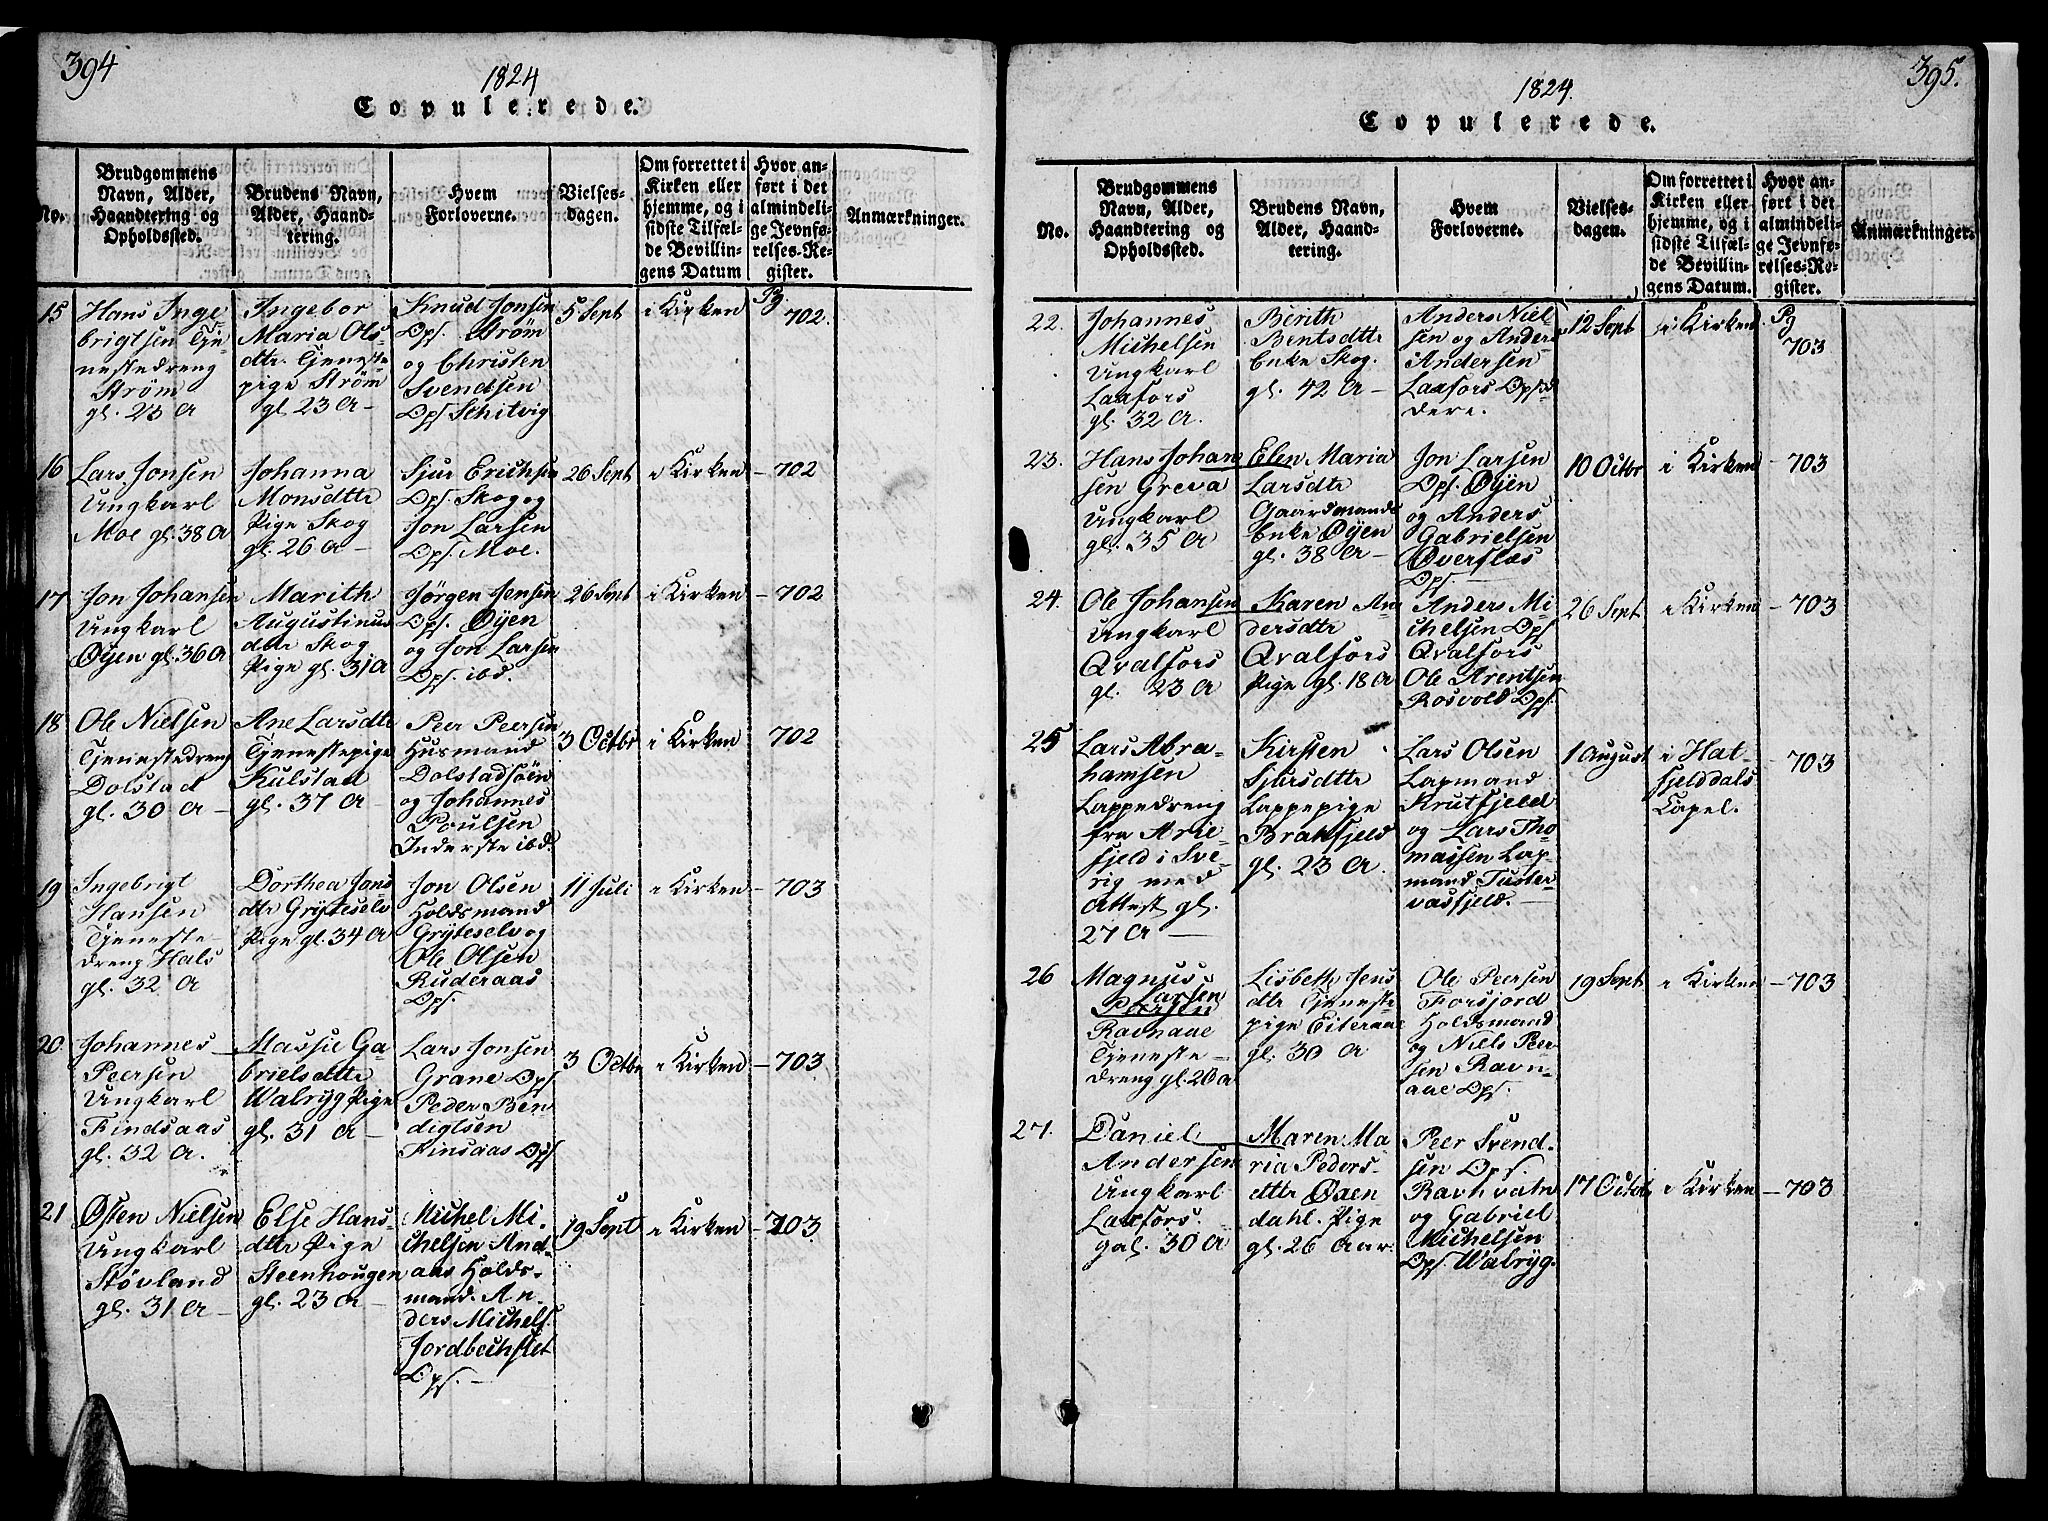 394
1824
Copulerede.
No.
Brudgommens
Navn, Alder,
Haandtering og
Opholdssted.
Brudens Navn,
Alder, Haand-
tering.
Hvem
Forloverne.
Vielses-
dagen.
Om forrettet i
Kirken eller
hjemme, og i
sidste Tilfæl-
de Bevillin-
gens Datum
Hvor an-
ført i det
almindeli-
ge Jevnfø-
relses-Re-
gister.
Anmærkninger.
15
Hans Inge
brigtsen Tje
nestedreng
Strøm
gl. 23 A
Ingebor
Maria Ols-
dtr. Tjeneste
pige Strøm
gl. 23 A –
Knud Jonsen
Ops. Strøm
og Christen
Svendsen
Ops Schitvig
5 Sept
i Kirken
Pg.
702.
16
Lars Jonsen
Ungkarl
Moe gl. 38 A
Johanna
Monsdtr
Pige Skog
gl. 26 A –
Sjur Erichsen
Ops. Skog og
Jon Larsen
Ops. Moe.
26 Sept
i Kirken
– 702
17
Jon Johansen
Ungkarl
Øyen gl. 36 A
Marith
Augustinus
dtr Skog
Pige gl. 31 A
Jørgen Jensen
Ops. Øyen
og Jon Larsen
Ops. ibd.
26 Sept
i Kirken
– 702
18
Ole Nielsen
Tjenestedreng
Dolstad
gl. 30 A –
Ane Larsdtr
Tjenestepige
Kulstad
gl. 37 A –
Peer Peersen
Husmand
Dolstadsøen
og Johannes
Poulsen
Inderste ibd.
3 Octbr
i Kirken
702
19
Ingebrigt
Hansen
Tjeneste-
dreng Hals
gl. 32 A
Dorthea Jons
dtr Gryteselv
Pige gl. 34 A
Jon Olsen
Holdsmand
Gryteselv og
Ole Olsen
Ruderaas
Ops.
11 Juli
i Kirken
– 703
20.
Johannes
Peersen
Ungkarl
Findsaas
gl. 32 A.
Massie Ga-
brielsdtr
Walryg Pige
gl. 31 A –
Lars Jonsen
Grane Ops.
Peder Ben
digtsen
Finsaas Ops
3 Octbr
i Kirken
– 703
21
Østen Nielsen
Ungkarl
Støvland
gl. 31 A –
Else Hans-
dtr Pige
Steenhougen
gl. 23 A –
Michel Mi-
chelsen And-
aas Holds-
mand. An-
ders Michels.
Jordbechslet
Ops. –
19 Sept
i Kirken
– 703
395.
1824.
Copulerede.
No.
Brudgommens
Navn, Alder,
Haandtering og
Opholdssted.
Brudens Navn,
Alder, Haand-
tering.
Hvem
Forloverne.
Vielses-
dagen.
Om forrettet i
Kirken eller
hjemme, og i
sidste Tilfæl-
de Bevillin-
gens Datum.
Hvor an-
ført i det
almindeli-
ge Jevnfø-
relses-Re-
gister.
Anmærkninger.
22.
Johannes
Michelsen
Ungkarl
Laafors
gl. 32 A.
Berith
Bentsdtr
Enke Skog.
gl. 42 A –
Anders Niel-
sen og Anders
Andersen
Laafors Ops.
12 Sept
i Kirken.
Pg
703
23.
Hans Johan
sen Greva
Ungkarl
gl. 35 A
Elen Maria
Larsdtr
Gaardmands
Enke Øyen
gl. 38 A –
Jon Larsen
Ops. Øyen
og Anders
Gabrielsen
Ops.
10 Octbr
i Kirken
– 703
24.
Ole Johansen
Ungkarl
Qvalfors
gl. 23 A
Karen An
dersdtr
Qvalfors
Pige gl. 18 A
Anders Mi
chelsen Ops
Qvalfors
Ole Arentsen
Rosvold Ops.
26 Sept.
i Kirken
– 703
25
Lars Abra-
hamsen
Lappedreng
fra Arie-
fjeld i Sve-
rig med
Attest gl.
27 A –
Kirsten
Sjursdtr
Lappepige
Brakfjeld
gl. 23 A.
Lars Olsen
Lapmand
Krutfjeld
og Lars Tho-
massen Lap-
mand Tuster-
vasfjeld. –
1 August
i Hat-
fjelddals
Capel.
– 703
26
Magnus
Larsen
Peersen
Ravnaae
Tjeneste –
dreng gl. 20 A
Lisbeth Jens
dtr Tjeneste
pige Eiteraae
gl. 30 A
Ole Peersen
Forsjord
Holdsmand
og Niels Peer
sen Ravn-
aae Ops.
19 Sept
i Kirken
– 703
27.
Daniel
Andersen
Ungkarl
Laafors.
gal. 30 A
Maren Ma
ria Peders-
dtr Øxen
dahl. Pige
gl. 26 Aar.
Peer Svend-
sen Ops.
og Gabriel
Michelsen
Ops. Walryg.
17 Octbr
i Kirken
– 703